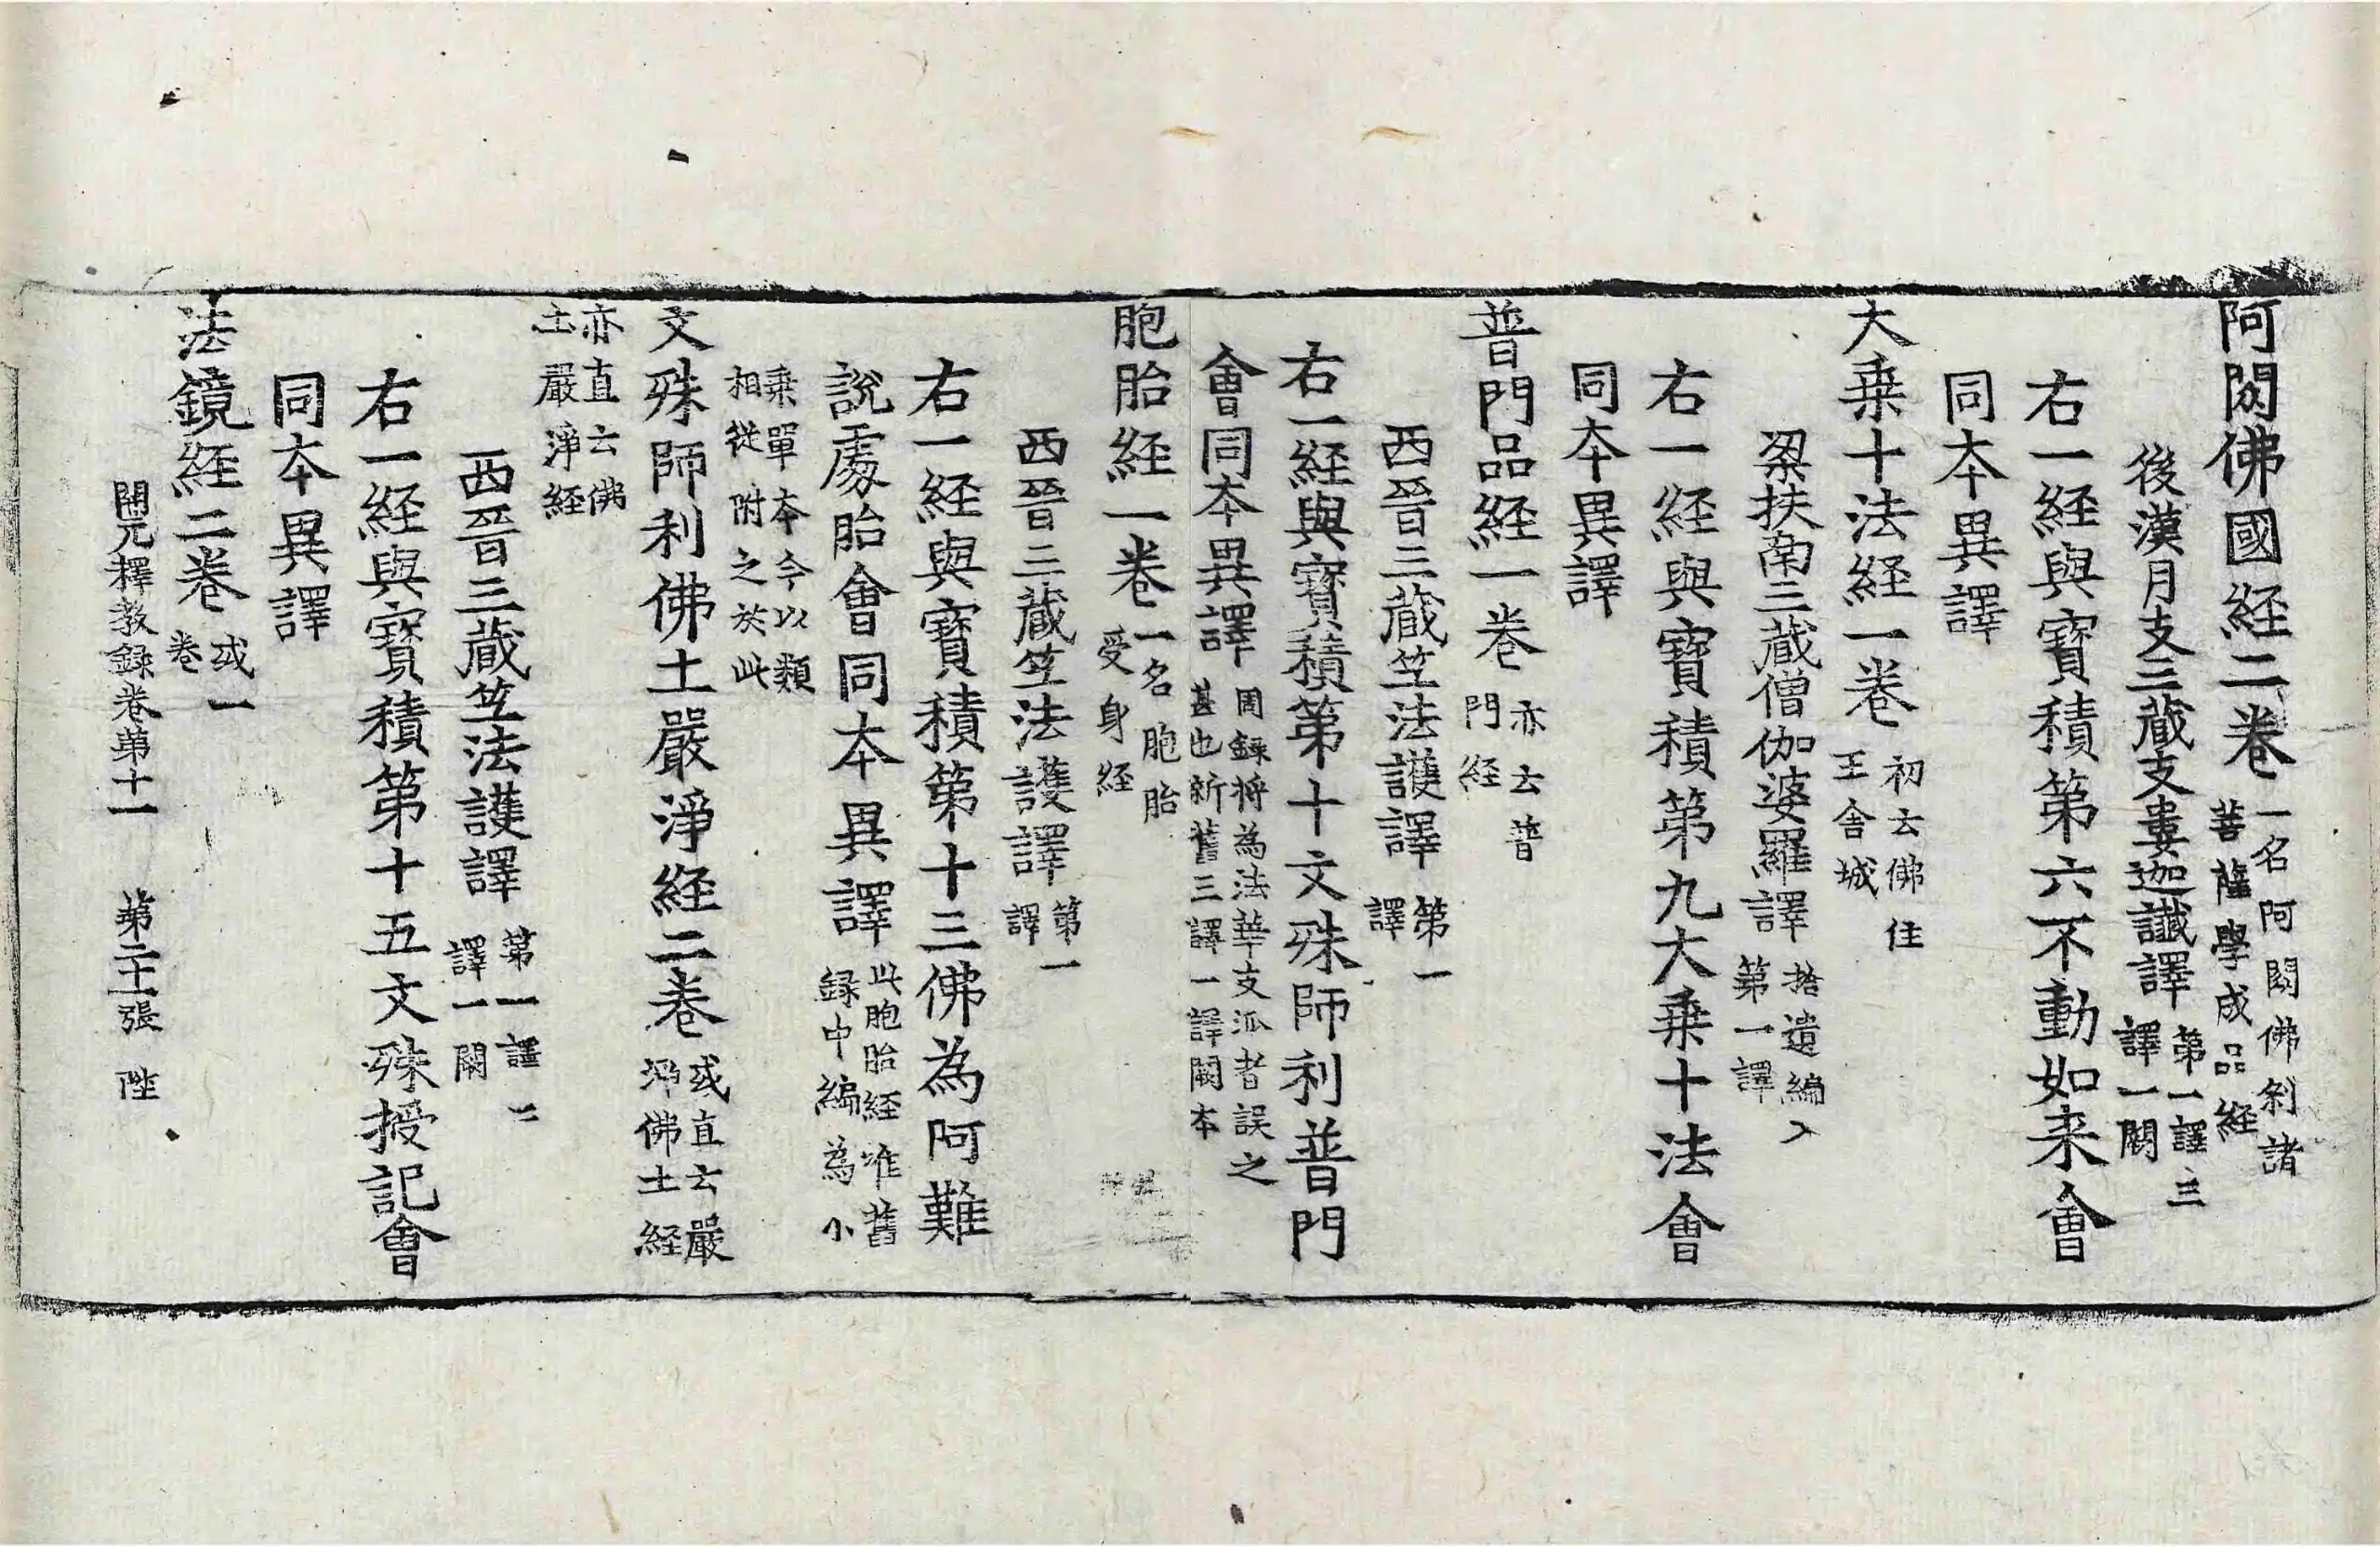 阿閦佛國経二卷一名阿閦佛剎諸菩薩學成品経
後漢月支三蔵支婁迦讖譯第一譯三譯一闕
右一経與寶積第六不動如来會
同本異譯
大乗十法経一卷初云佛住王舎城
梁扶南三蔵僧伽婆羅譯拾遺編入第一譯
右一経與寶積第九大乗十法會
同本異譯
普門品経一卷亦云普門経
西晉三蔵竺法護譯第一譯
右一経與寶積第十文殊師利普門
會同本異譯周録将為法華支派者誤之甚也新舊三譯一譯闕本
胞胎経一卷一名胞胎受身経
西晉三蔵竺法護譯第一譯
右一経與寶積第十三佛為阿難
說處胎會同本異譯此胞胎経唯舊録中編為小
乗單本今以類相從附之於此
文殊師利佛土嚴淨経二卷或直云嚴淨佛土経
亦直云佛土嚴淨経
西晉三蔵竺法護譯第一譯二譯一闕
右一経與寶積第十五文殊授記會
同本異譯
法鏡経二卷或一卷
開元釋教録卷第十一　第二十張　陛